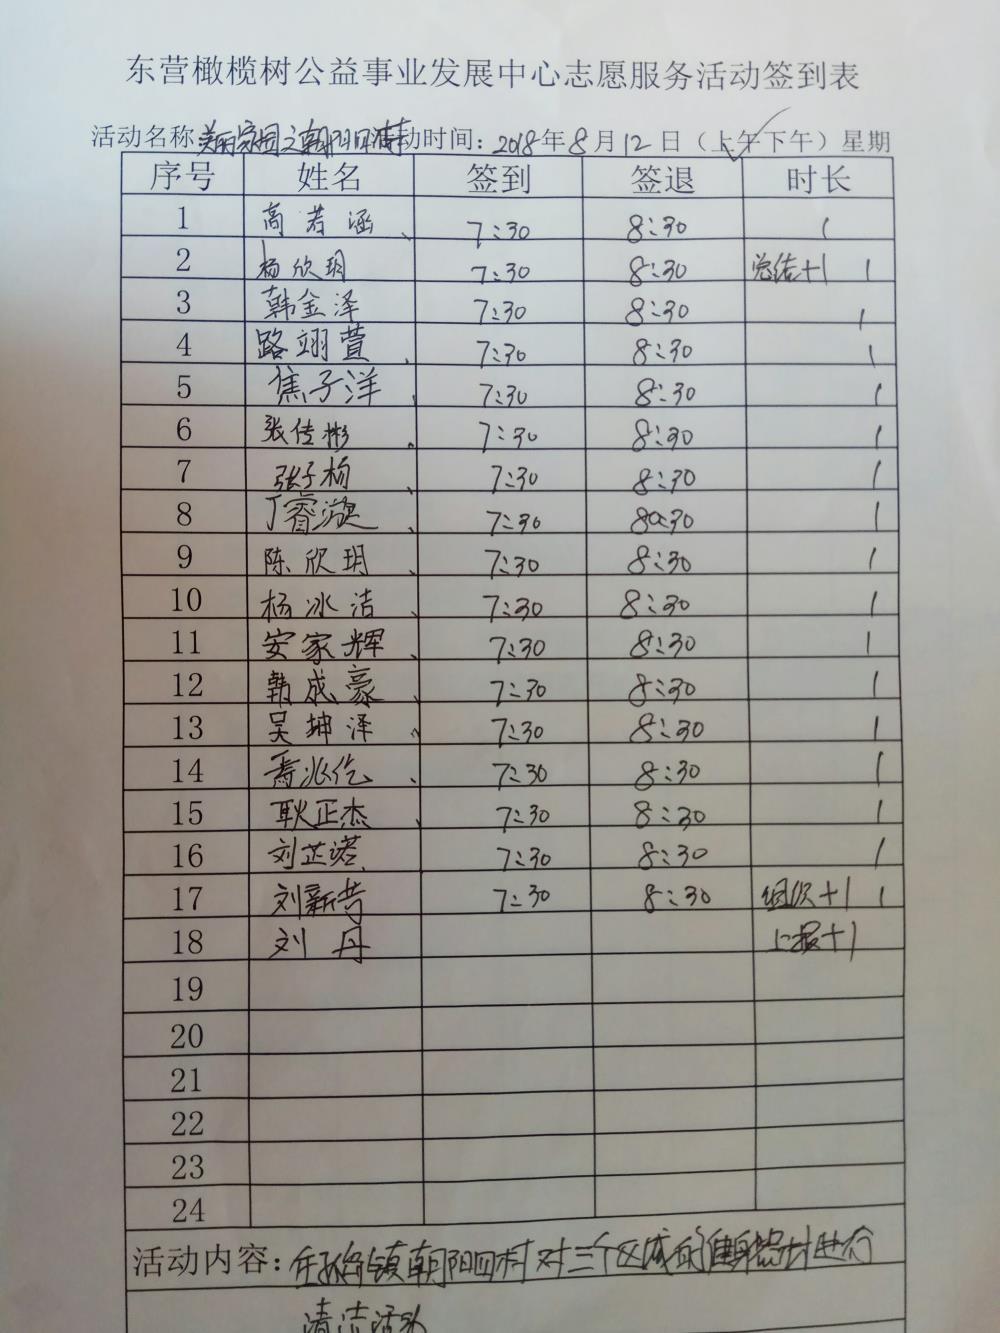 东营橄榄树公益事业发展中心志愿服务活动签到表
活动名称 美丽家园之朝阳四村 活动时间：2018年8月12日（上午✓下午）星期
序号 姓名 签到 签退 时长
1 高若涵 7:30 8:30 1
2 杨欣玥 7:30 8:30 总结+1 1
3 韩金泽 7:30 8:30 1
4 路翊萱 7:30 8:30 1
5 焦子洋 7:30 8:30 1
6 张佳彬 7:30 8:30 1
7 张子杨 7:30 8:30 1
8 丁睿漩 7:30 8:30 1
9 陈欣玥 7:30 8:30 1
10 杨冰洁 7:30 8:30 1
11 安家辉 7:30 8:30 1
12 韩成豪 7:30 8:30 1
13 吴坤泽 7:30 8:30 1
14 7:30 8:30 1
15 耿正杰 7:30 8:30 1
16 刘芷诺 7:30 8:30 1
17 刘新 7:30 8:30 组织+1 1
18 刘丹 上报+1
19
20
21
22
23
24
活动内容：在孤岛镇朝阳四村对三个区域的健身器材进行
清洁活动